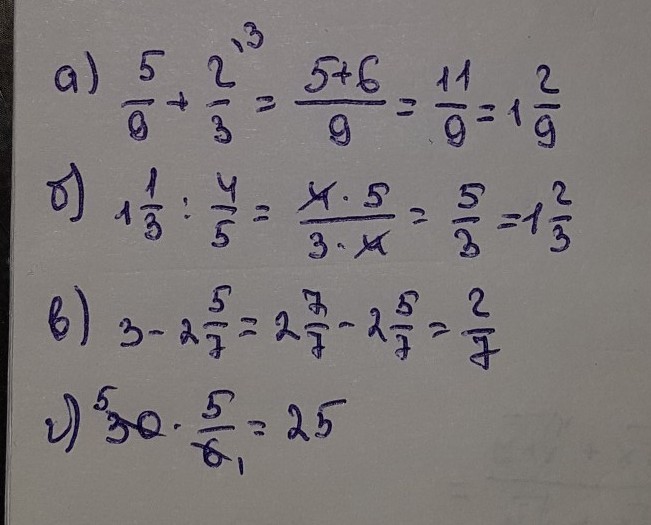 а) 5/9 + 2/3 ,3 = 5+6/9 = 11/9 = 1 2/9
б) 1 1/3 : 4/5 = 4·5/3·4 = 5/3 = 1 2/3
в) 3 - 2 5/7 = 2 7/7 - 2 5/7 = 2/7
г) 5 30 · 5/6 1 = 25